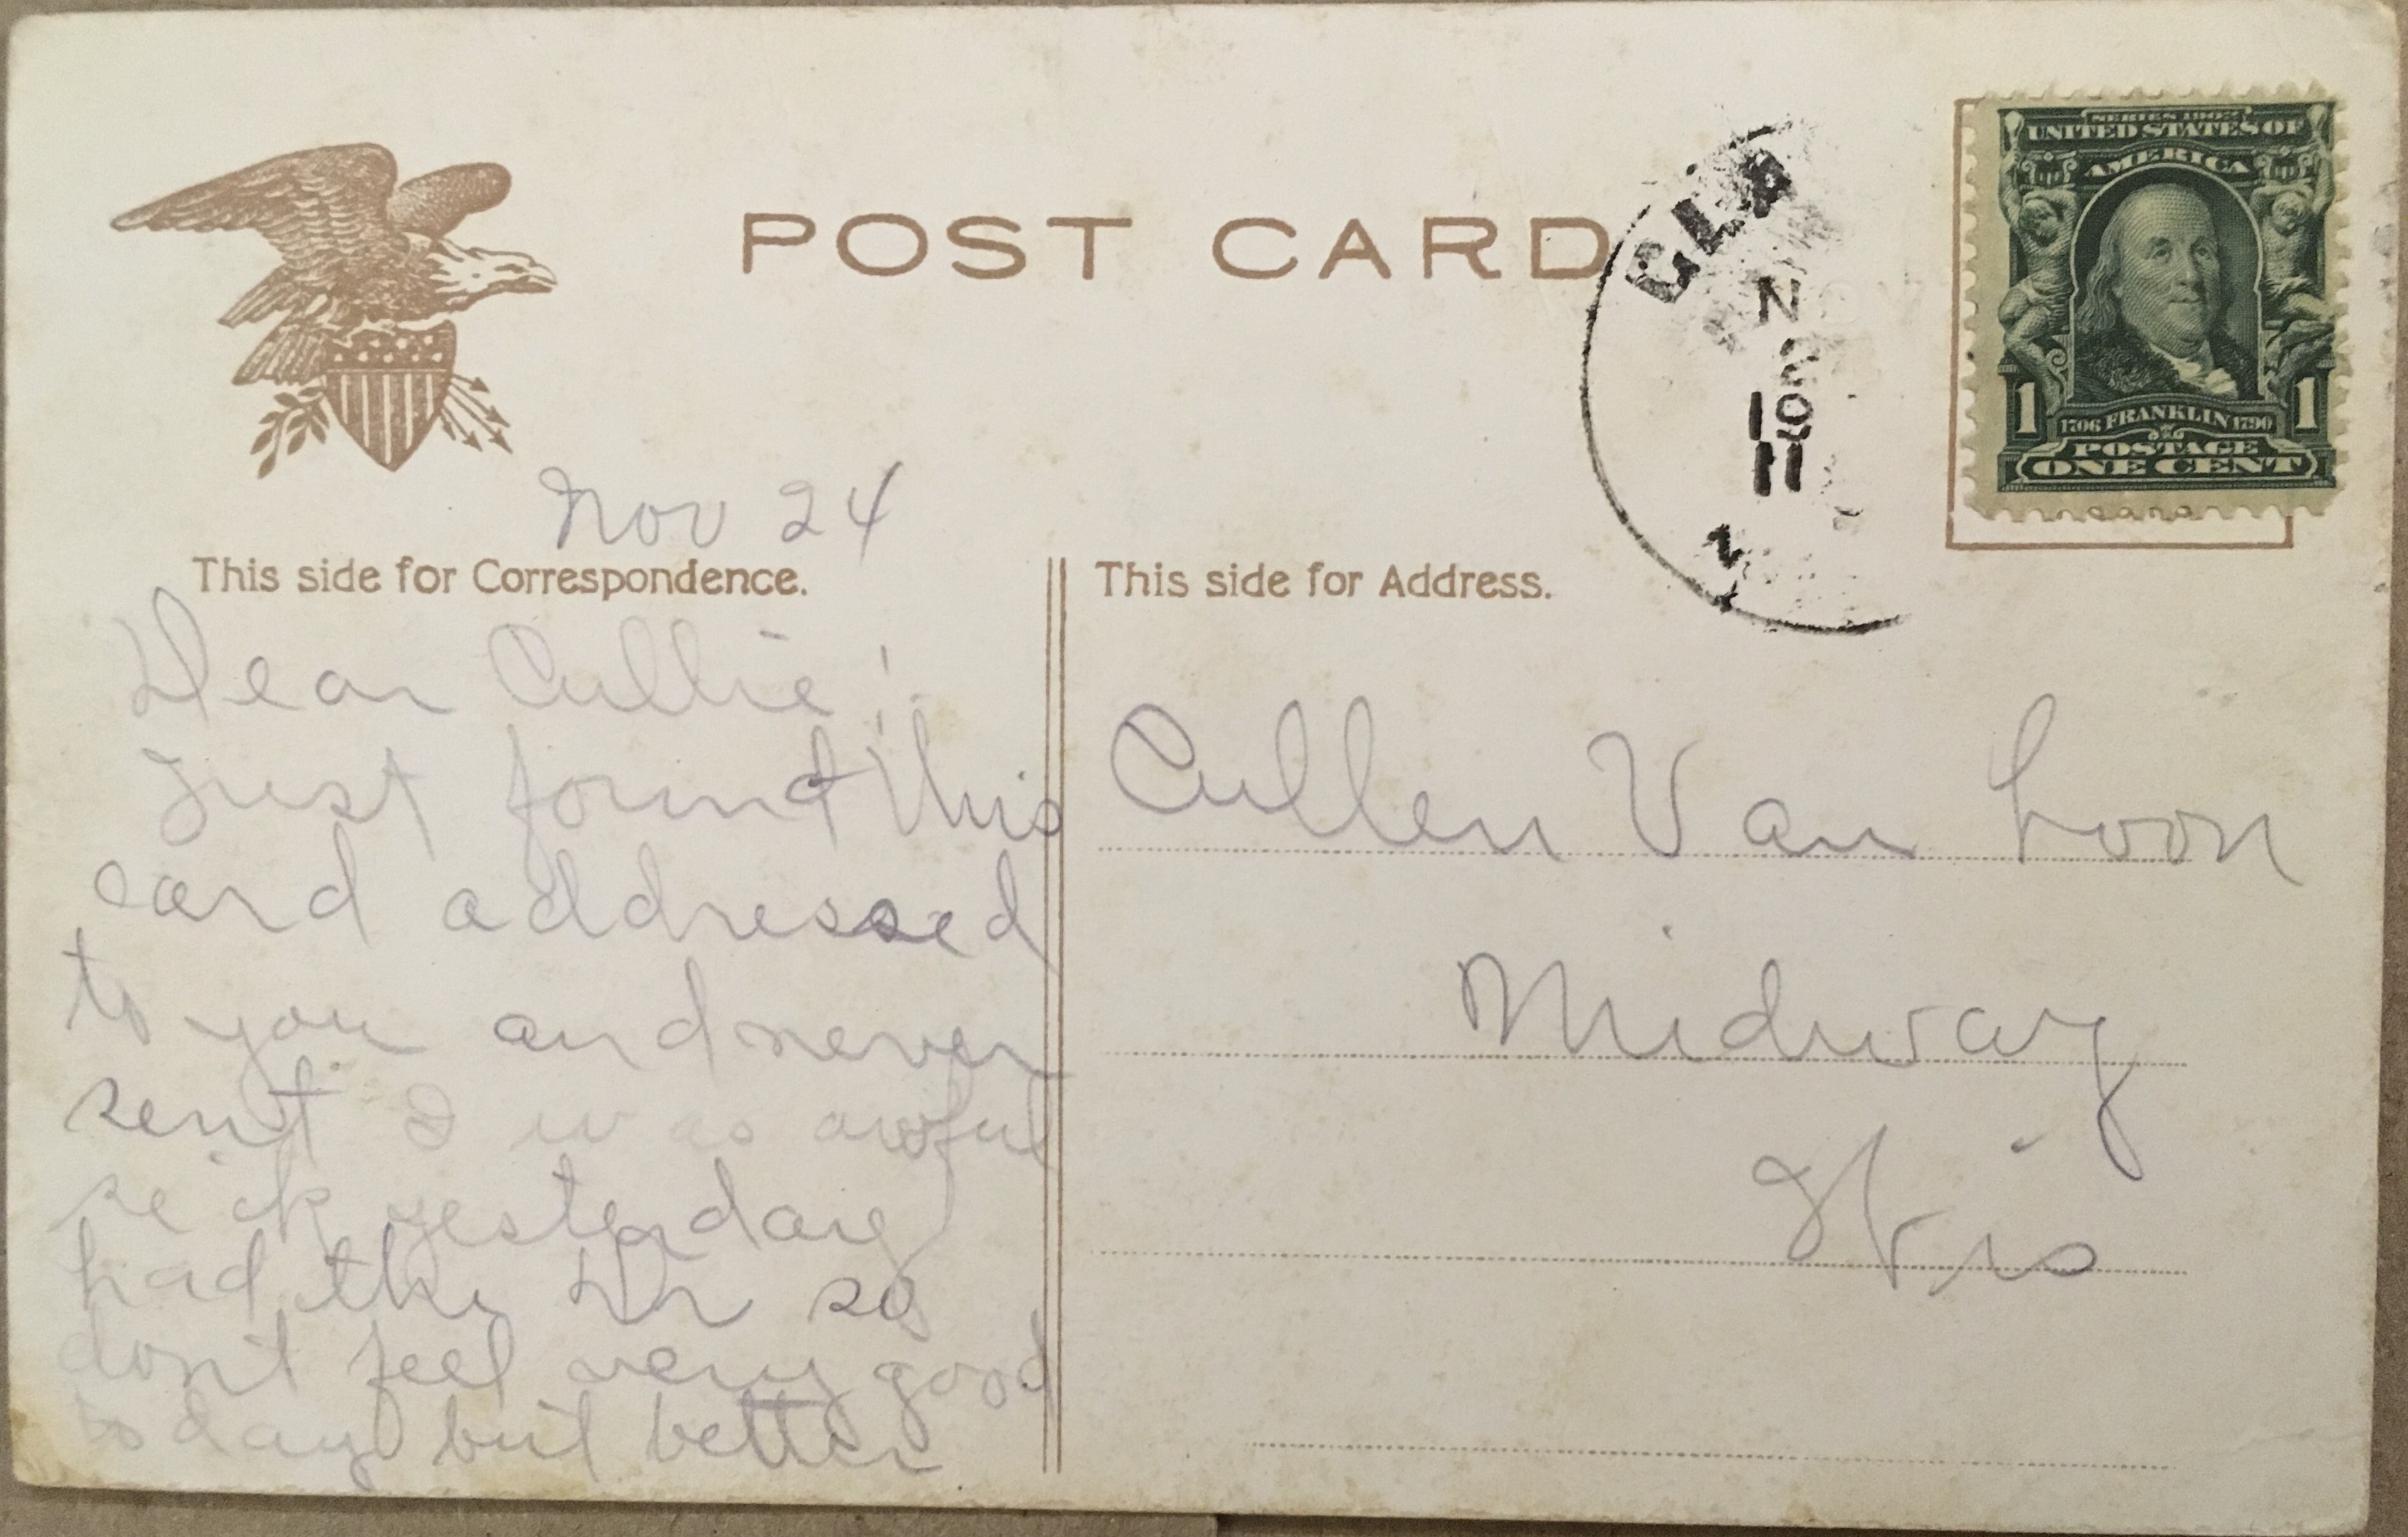 POST CARD
CLA
N
2
19
11
N
Y
SERIES 1902
UNITED STATES OF
AMERICA
1 1
1706 FRANKLIN 1790
POSTAGE
ONE CENT
Nov 24
This side for Correspondence.
Dear Cullie!
Just found this
card addressed
to you and never
sent I was awful
sick yesterday
had the Dr so
don't feel very good
today but better
This side for Address.
Cullen Van Loon
Midway
Wis